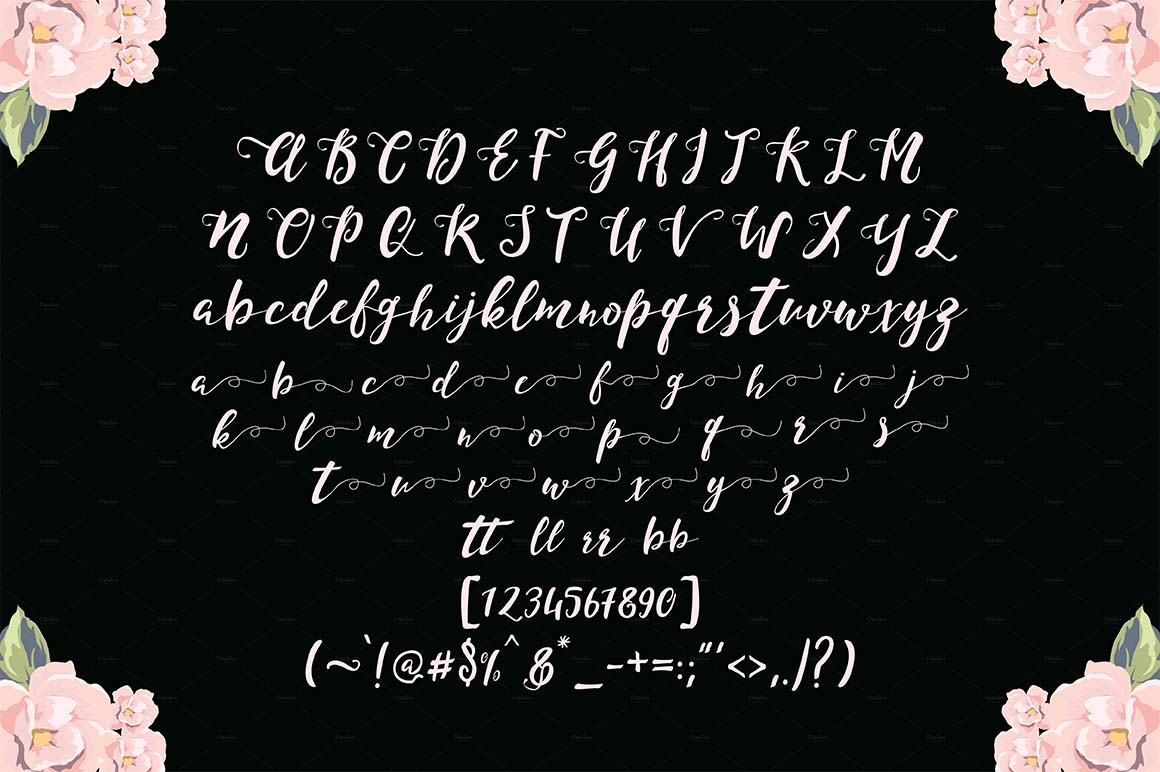 A B C D E F G H I J K L M
N O P Q R S T U V W X Y Z
abcdefghijklmnopqrstuvwxyz
a b c d e f g h i j
k l m n o p q r s
t u v w x y z
tt ll rr bb
[1234567890]
(~`!@#$%^&*_-+=:;"'<>,./?)